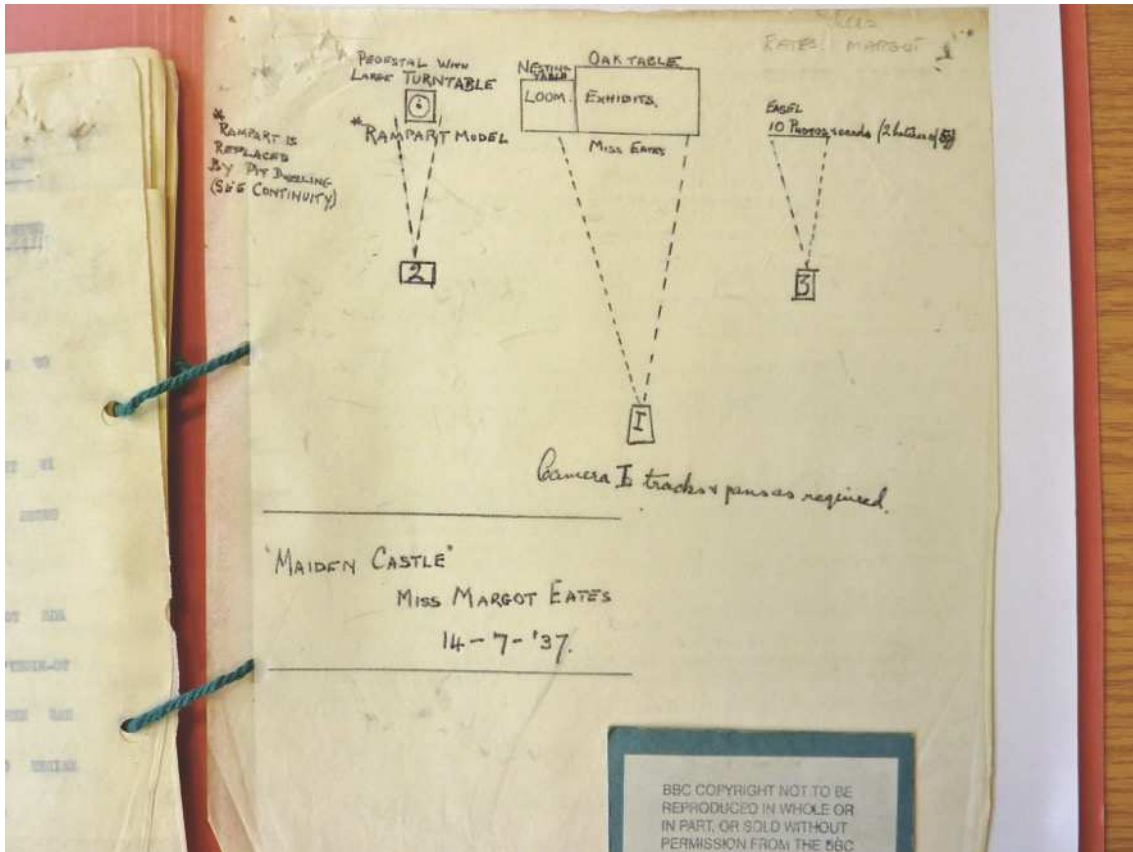 EATES MARGOT
PEDESTAL WITH
LARGE TURNTABLE
* RAMPART MODEL
*
RAMPART IS
REPLACED
BY PIT DWELLING
(SEE CONTINUITY)
2
NESTING
TABLE
LOOM.
OAK TABLE
EXHIBITS.
MISS EATES
EASEL
10 PHOTOS
3
I
Camera I tracks & pans as required.
"MAIDEN CASTLE"
MISS MARGOT EATES
14-7-'37.
BBC COPYRIGHT NOT TO BE
REPRODUCED IN WHOLE OR
IN PART, OR SOLD WITHOUT
PERMISSION FROM THE BBC